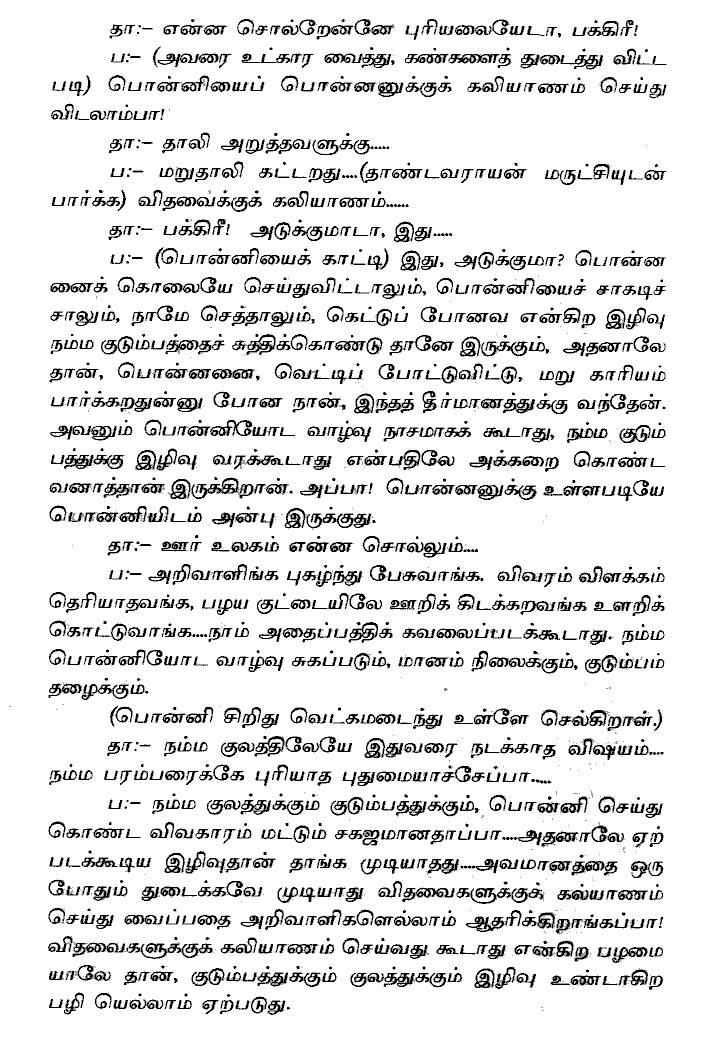 தா:– என்ன சொல்றேன்னே புரியலையேடா, பக்கிரீ!
ப:– (அவரை உட்கார வைத்து, கண்களைத் துடைத்து விட்ட
படி) பொன்னியைப் பொன்னனுக்குக் கலியாணம் செய்து
விடலாம்பா!
தா:– தாலி அறுத்தவளுக்கு.....
ப:– மறுதாலி கட்டறது....(தாண்டவராயன் மருட்சியுடன்
பார்க்க) விதவைக்குக் கலியாணம்......
தா:– பக்கிரீ! அடுக்குமாடா, இது.....
ப:– (பொன்னியைக் காட்டி) இது, அடுக்குமா? பொன்ன
னைக் கொலையே செய்துவிட்டாலும், பொன்னியைச் சாகடிச்
சாலும், நாமே செத்தாலும், கெட்டுப் போனவ என்கிற இழிவு
நம்ம குடும்பத்தைச் சுத்திக்கொண்டு தானே இருக்கும், அதனாலே
தான், பொன்னனை, வெட்டிப் போட்டுவிட்டு, மறு காரியம்
பார்க்கறதுன்னு போன நான், இந்தத் தீர்மானத்துக்கு வந்தேன்.
அவனும் பொன்னியோட வாழ்வு நாசமாகக் கூடாது, நம்ம குடும்
பத்துக்கு இழிவு வரக்கூடாது என்பதிலே அக்கறை கொண்ட
வனாத்தான் இருக்கிறான். அப்பா! பொன்னனுக்கு உள்ளபடியே
பொன்னியிடம் அன்பு இருக்குது.
தா:– ஊர் உலகம் என்ன சொல்லும்....
ப:– அறிவாளிங்க புகழ்ந்து பேசுவாங்க. விவரம் விளக்கம்
தெரியாதவங்க, பழய குட்டையிலே ஊறிக் கிடக்கறவங்க உளறிக்
கொட்டுவாங்க....நாம் அதைப்பத்திக் கவலைப்படக்கூடாது. நம்ம
பொன்னியோட வாழ்வு சுகப்படும், மானம் நிலைக்கும், குடும்பம்
தழைக்கும்.
(பொன்னி சிறிது வெட்கமடைந்து உள்ளே செல்கிறாள்.)
தா:– நம்ம குலத்திலேயே இதுவரை நடக்காத விஷயம்....
நம்ம பரம்பரைக்கே புரியாத புதுமையாச்சேப்பா.....
ப:– நம்ம குலத்துக்கும் குடும்பத்துக்கும், பொன்னி செய்து
கொண்ட விவகாரம் மட்டும் சகஜமானதாப்பா....அதனாலே ஏற்
படக்கூடிய இழிவுதான் தாங்க முடியாதது....அவமானத்தை ஒரு
போதும் துடைக்கவே முடியாது விதவைகளுக்குக் கல்யாணம்
செய்து வைப்பதை அறிவாளிகளெல்லாம் ஆதரிக்கிறாங்கப்பா!
விதவைகளுக்குக் கலியாணம் செய்வது கூடாது என்கிற பழமை
யாலே தான், குடும்பத்துக்கும் குலத்துக்கும் இழிவு உண்டாகிற
பழி யெல்லாம் ஏற்படுது.